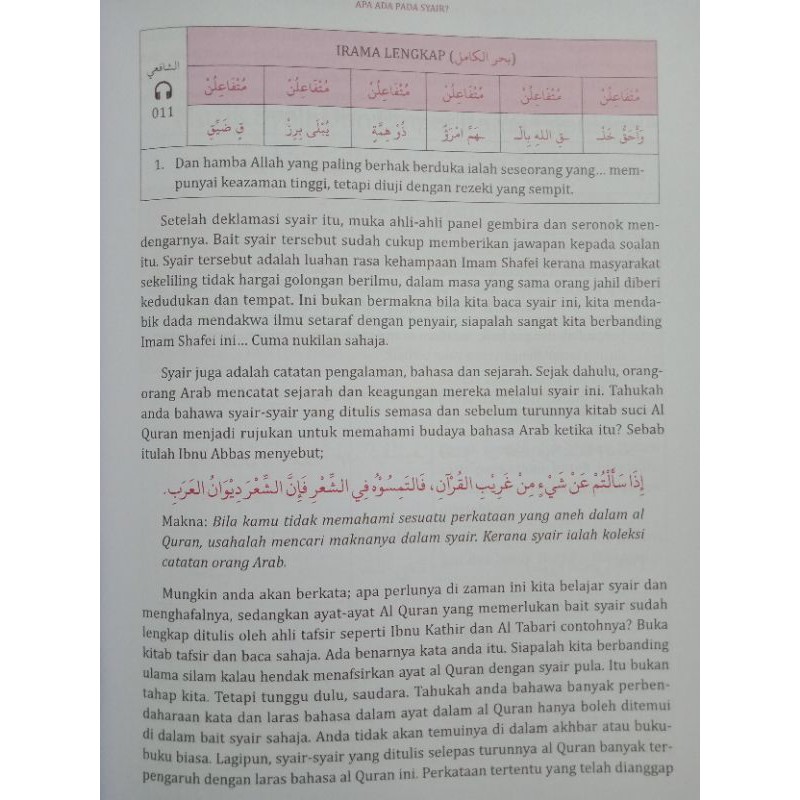 APA ADA PADA SYAIR?
الشافعي
011
IRAMA LENGKAP (بحر الكامل)
مُتَفَاعِلُنْ مُتْفَاعِلُنْ مُتْفَاعِلُنْ مُتْفَاعِلُنْ مُتْفَاعِلُنْ مُتْفَاعِلُنْ
وَأَحَقُّ خَلْـ ـقِ اللهِ بِالْـ ـهَمِّ امْرَؤٌ ذُوْ هِمَّةٍ يُبْلَى بِرِزْ قٍ ضَيِّقٍ
1. Dan hamba Allah yang paling berhak berduka ialah seseorang yang... mem-
punyai keazaman tinggi, tetapi diuji dengan rezeki yang sempit.
Setelah deklamasi syair itu, muka ahli-ahli panel gembira dan seronok men-
dengarnya. Bait syair tersebut sudah cukup memberikan jawapan kepada soalan
itu. Syair tersebut adalah luahan rasa kehampaan Imam Shafei kerana masyarakat
sekeliling tidak hargai golongan berilmu, dalam masa yang sama orang jahil diberi
kedudukan dan tempat. Ini bukan bermakna bila kita baca syair ini, kita menda-
bik dada mendakwa ilmu setaraf dengan penyair, siapalah sangat kita berbanding
Imam Shafei ini... Cuma nukilan sahaja.
Syair juga adalah catatan pengalaman, bahasa dan sejarah. Sejak dahulu, orang-
orang Arab mencatat sejarah dan keagungan mereka melalui syair ini. Tahukah
anda bahawa syair-syair yang ditulis semasa dan sebelum turunnya kitab suci Al
Quran menjadi rujukan untuk memahami budaya bahasa Arab ketika itu? Sebab
itulah Ibnu Abbas menyebut;
إِذَا سَأَلْتُمْ عَنْ شَيْءٍ مِنْ غَرِيْبِ القُرْآنِ، فَالتَمِسُوْهُ فِي الشِّعْرِ فَإِنَّ الشِّعْرَ دِيْوَانُ العَرَبِ.
Makna: Bila kamu tidak memahami sesuatu perkataan yang aneh dalam al
Quran, usahalah mencari maknanya dalam syair. Kerana syair ialah koleksi
catatan orang Arab.
Mungkin anda akan berkata; apa perlunya di zaman ini kita belajar syair dan
menghafalnya, sedangkan ayat-ayat Al Quran yang memerlukan bait syair sudah
lengkap ditulis oleh ahli tafsir seperti Ibnu Kathir dan Al Tabari contohnya? Buka
kitab tafsir dan baca sahaja. Ada benarnya kata anda itu. Siapalah kita berbanding
ulama silam kalau hendak menafsirkan ayat al Quran dengan syair pula. Itu bukan
tahap kita. Tetapi tunggu dulu, saudara. Tahukah anda bahawa banyak perben-
daharaan kata dan laras bahasa dalam ayat dalam al Quran hanya boleh ditemui
di dalam bait syair sahaja. Anda tidak akan temuinya di dalam akhbar atau buku-
buku biasa. Lagipun, syair-syair yang ditulis selepas turunnya al Quran banyak ter-
pengaruh dengan laras bahasa al Quran ini. Perkataan tertentu yang telah dianggap